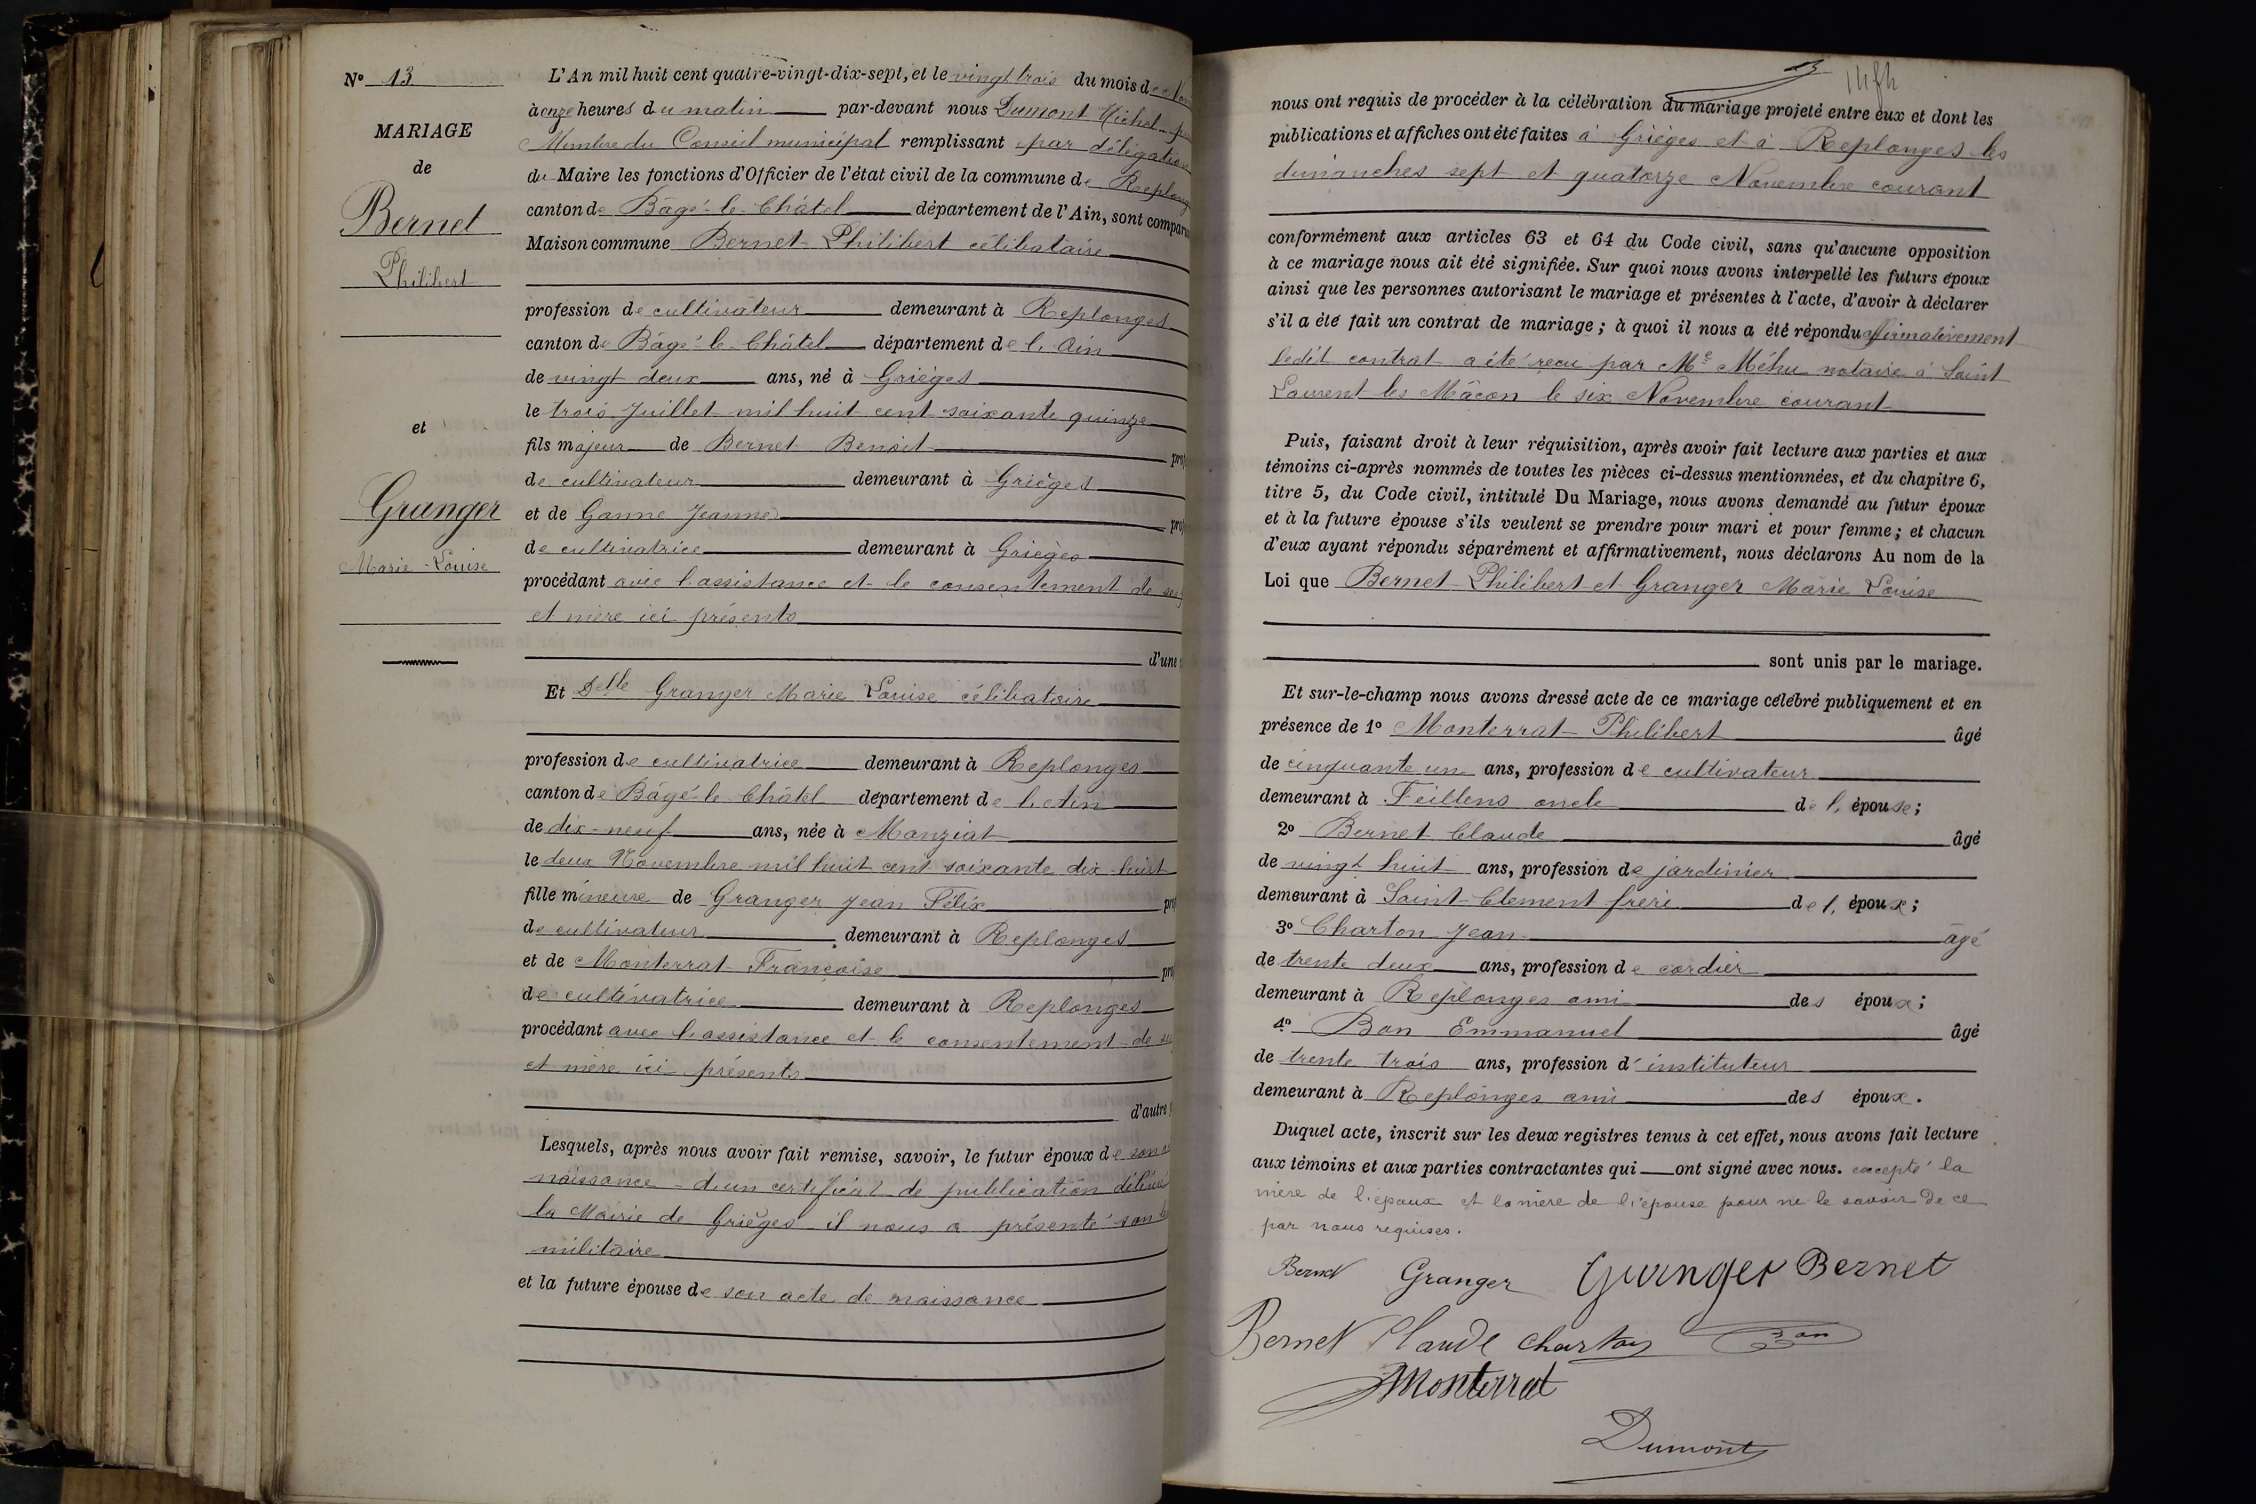 N° 13
MARIAGE
de
Bernet
Philibert
et
Granger
Marie-Louise
L'An mil huit cent quatre-vingt-dix-sept, et le vingt trois du mois de Nov
à onze heures du matin par-devant nous Dumont Michel
Membre du Conseil municipal remplissant par délégation
du Maire les fonctions d'Officier de l'état civil de la commune de Replong
canton de Bâgé-le-Châtel département de l'Ain, sont comparu
Maison commune Bernet Philibert célibataire
profession de cultivateur demeurant à Replonges
canton de Bâgé-le-Châtel département de l'Ain
de vingt deux ans, né à Grièges
le trois Juillet mil huit cent soixante quinze
fils majeur de Bernet Benoît prof
de cultivateur demeurant à Grièges
et de Ganne Jeanne prof
de cultivatrice demeurant à Grièges
procédant avec l'assistance et le consentement de ses
et mère ici présents
d'une
Et Delle Granger Marie Louise célibataire
profession de cultivatrice demeurant à Replonges
canton de Bâgé-le-Châtel département de l'Ain
de dix-neuf ans, née à Manziat
le deux Novembre mil huit cent soixante dix-huit
fille mineure de Granger Jean Félix prof
de cultivateur demeurant à Replonges
et de Monterrat Françoise pro
de cultivatrice demeurant à Replonges
procédant avec l'assistance et le consentement de se
et mère ici présents
d'autre
Lesquels, après nous avoir fait remise, savoir, le futur époux de son
naissance - d'un certificat de publication délivré
la Mairie de Grièges il nous a présenté son
militaire
et la future épouse de son acte de naissance
13
nous ont requis de procéder à la célébration du mariage projeté entre eux et dont les
publications et affiches ont été faites à Grièges et à Replonges les
dimanches sept et quatorze Novembre courant
conformément aux articles 63 et 64 du Code civil, sans qu'aucune opposition
à ce mariage nous ait été signifiée. Sur quoi nous avons interpellé les futurs époux
ainsi que les personnes autorisant le mariage et présentes à l'acte, d'avoir à déclarer
s'il a été fait un contrat de mariage; à quoi il nous a été répondu affirmativement
ledit contrat a été reçu par Me Méhu notaire à Saint
Laurent les Mâcon le six Novembre courant
Puis, faisant droit à leur réquisition, après avoir fait lecture aux parties et aux
témoins ci-après nommés de toutes les pièces ci-dessus mentionnées, et du chapitre 6,
titre 5, du Code civil, intitulé Du Mariage, nous avons demandé au futur époux
et à la future épouse s'ils veulent se prendre pour mari et pour femme; et chacun
d'eux ayant répondu séparément et affirmativement, nous déclarons Au nom de la
Loi que Bernet Philibert et Granger Marie Louise
sont unis par le mariage.
Et sur-le-champ nous avons dressé acte de ce mariage célébré publiquement et en
présence de 1° Monterrat Philibert âgé
de cinquante un ans, profession de cultivateur
demeurant à Feillens oncle de l'épouse;
2° Bernet Claude âgé
de vingt huit ans, profession de jardinier
demeurant à Saint-Clement frère de l'époux;
3° Charton Jean âgé
de trente deux ans, profession de cordier
demeurant à Replonges ami des époux;
4° Ban Emmanuel âgé
de trente trois ans, profession d'instituteur
demeurant à Replonges ami des époux.
Duquel acte, inscrit sur les deux registres tenus à cet effet, nous avons fait lecture
aux témoins et aux parties contractantes qui ont signé avec nous. excepté la
mère de l'époux et la mère de l'épouse pour ne le savoir de ce
par nous requises.
Bernet Granger Granger Bernet
Bernet Claude Charton Ban
Monterrat
Dumont